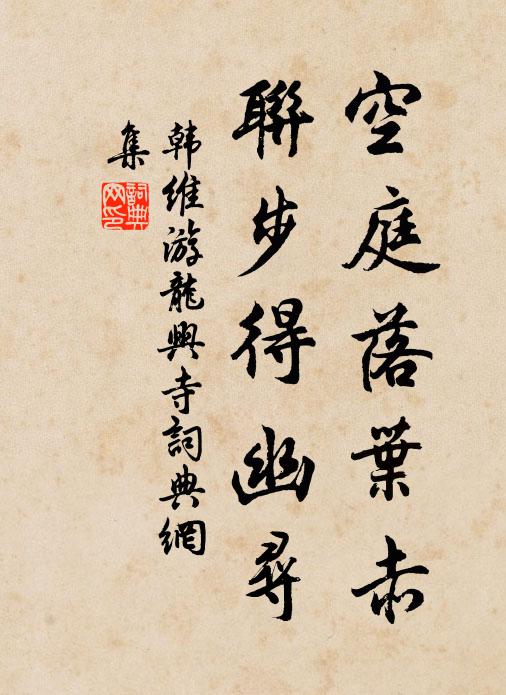 空庭落葉赤
聯步得幽尋
韩维游龍興寺詞典網
集
詞典網印